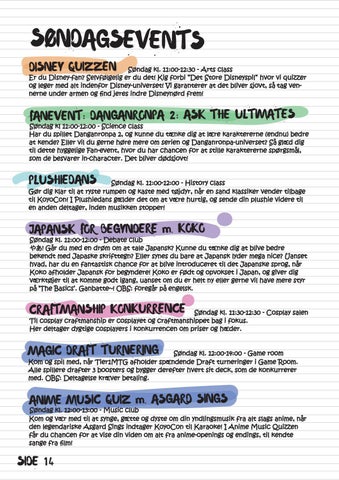 SØNDAGSEVENTS
DISNEY QUIZZEN Søndag kl. 11:00-12:30 - Arts class
Er du Disney-fan? Selvfølgelig er du det! Kig forbi "Det Store Disneyspil" hvor vi quizzer
og leger med alt indenfor Disney-universet! Vi garanterer at det bliver sjovt, så tag ven-
nerne under armen og find jeres indre Disneynørd frem!
FANEVENT: DANGANRONPA 2: ASK THE ULTIMATES
Søndag kl. 11:00-12:00 - Science class
Har du spillet Danganronpa 2, og kunne du tænke dig at lære karaktererne (endnu) bedre
at kende? Eller vil du gerne høre mere om serien og Danganronpa-universet? Så glæd dig
til dette hyggelige Fan-event, hvor du har chancen for at stille karaktererne spørgsmål,
som de besvarer in-character. Det bliver dødsjovt!
PLUSHIEDANS Søndag kl. 11:00-12:00 - History class
Gør dig klar til at ryste rumpen og kaste med tøjdyr, når en sand klassiker vender tilbage
til KoyoCon! I Plushiedans gælder det om at være hurtig, og sende din plushie videre til
en anden deltager, inden musikken stopper!
JAPANSK FOR BEGYNDERE m. KOKO
Søndag kl. 11:00-12:00 - Debate club
今日! Går du med en drøm om at tale Japansk? Kunne du tænke dig at blive bedre
bekendt med Japanske skrifttegn? Eller synes du bare at Japansk lyder mega nice? Uanset
hvad, har du en fantastisk chance for at blive introduceret til det Japanske sprog, når
Koko afholder Japansk for begyndere! Koko er født og opvokset i Japan, og giver dig
værktøjer til at komme godt igang, uanset om du er helt ny eller gerne vil have mere styr
på 'The Basics'. Ganbatte~! OBS: foregår på engelsk.
CRAFTMANSHIP KONKURRENCE Søndag kl. 11:30-12:30 - Cosplay salen
Til cosplay craftmanship er cosplayet og craftmanshippet bag i fokus.
Her deltager dygtige cosplayers i konkurrencen om priser og hæder.
MAGIC DRAFT TURNERING Søndag kl. 12:00-14:00 - Game room
Kom og spil med, når Tier1MTG afholder spændende Draft turneringer i Game Room.
Alle spillere drafter 3 boosters og bygger derefter hvert sit deck, som de konkurrerer
med. OBS: Deltagelse kræver betaling.
ANIME MUSIC QUIZ m. ASGARD SINGS
Søndag kl. 12:00-13:00 - Music club
Kom og vær med til at synge, gætte og dyste om din yndlingsmusik fra alt slags anime, når
den legendariske Asgard Sings indtager KoyoCon til Karaoke! I Anime Music Quizzen
får du chancen for at vise din viden om alt fra anime-openings og endings, til kendte
sange fra film!
SIDE 14